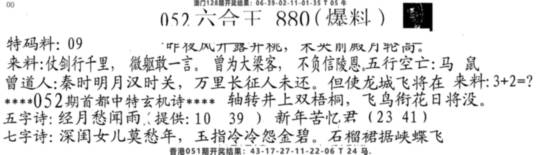 00
澳门128期开奖结果：06-39-02-11-01-35 T 05 牛
052 六合王 880(爆料)
特码料: 09
昨夜风开露井桃，未央前殿月轮高。
来料:仗剑行千里，微躯敢一言。曾为大梁客，不负信陵恩,五行空亡: 马 鼠
曾道人:秦时明月汉时关，万里长征人未还。但使龙城飞将在 来料:3+2=?
****052期首都中特玄机诗**** 轴转井上双梧桐，飞鸟衔花日将没。
五字诗: 经月愁闻雨(提供: 10 39 ) 新年苦忆君 (23 41)
七字诗: 深闺女儿莫愁年，玉指冷冷怨金碧。石榴裙裾蛱蝶飞
香港051期开奖结果：43-17-27-11-22-06 T 24 马